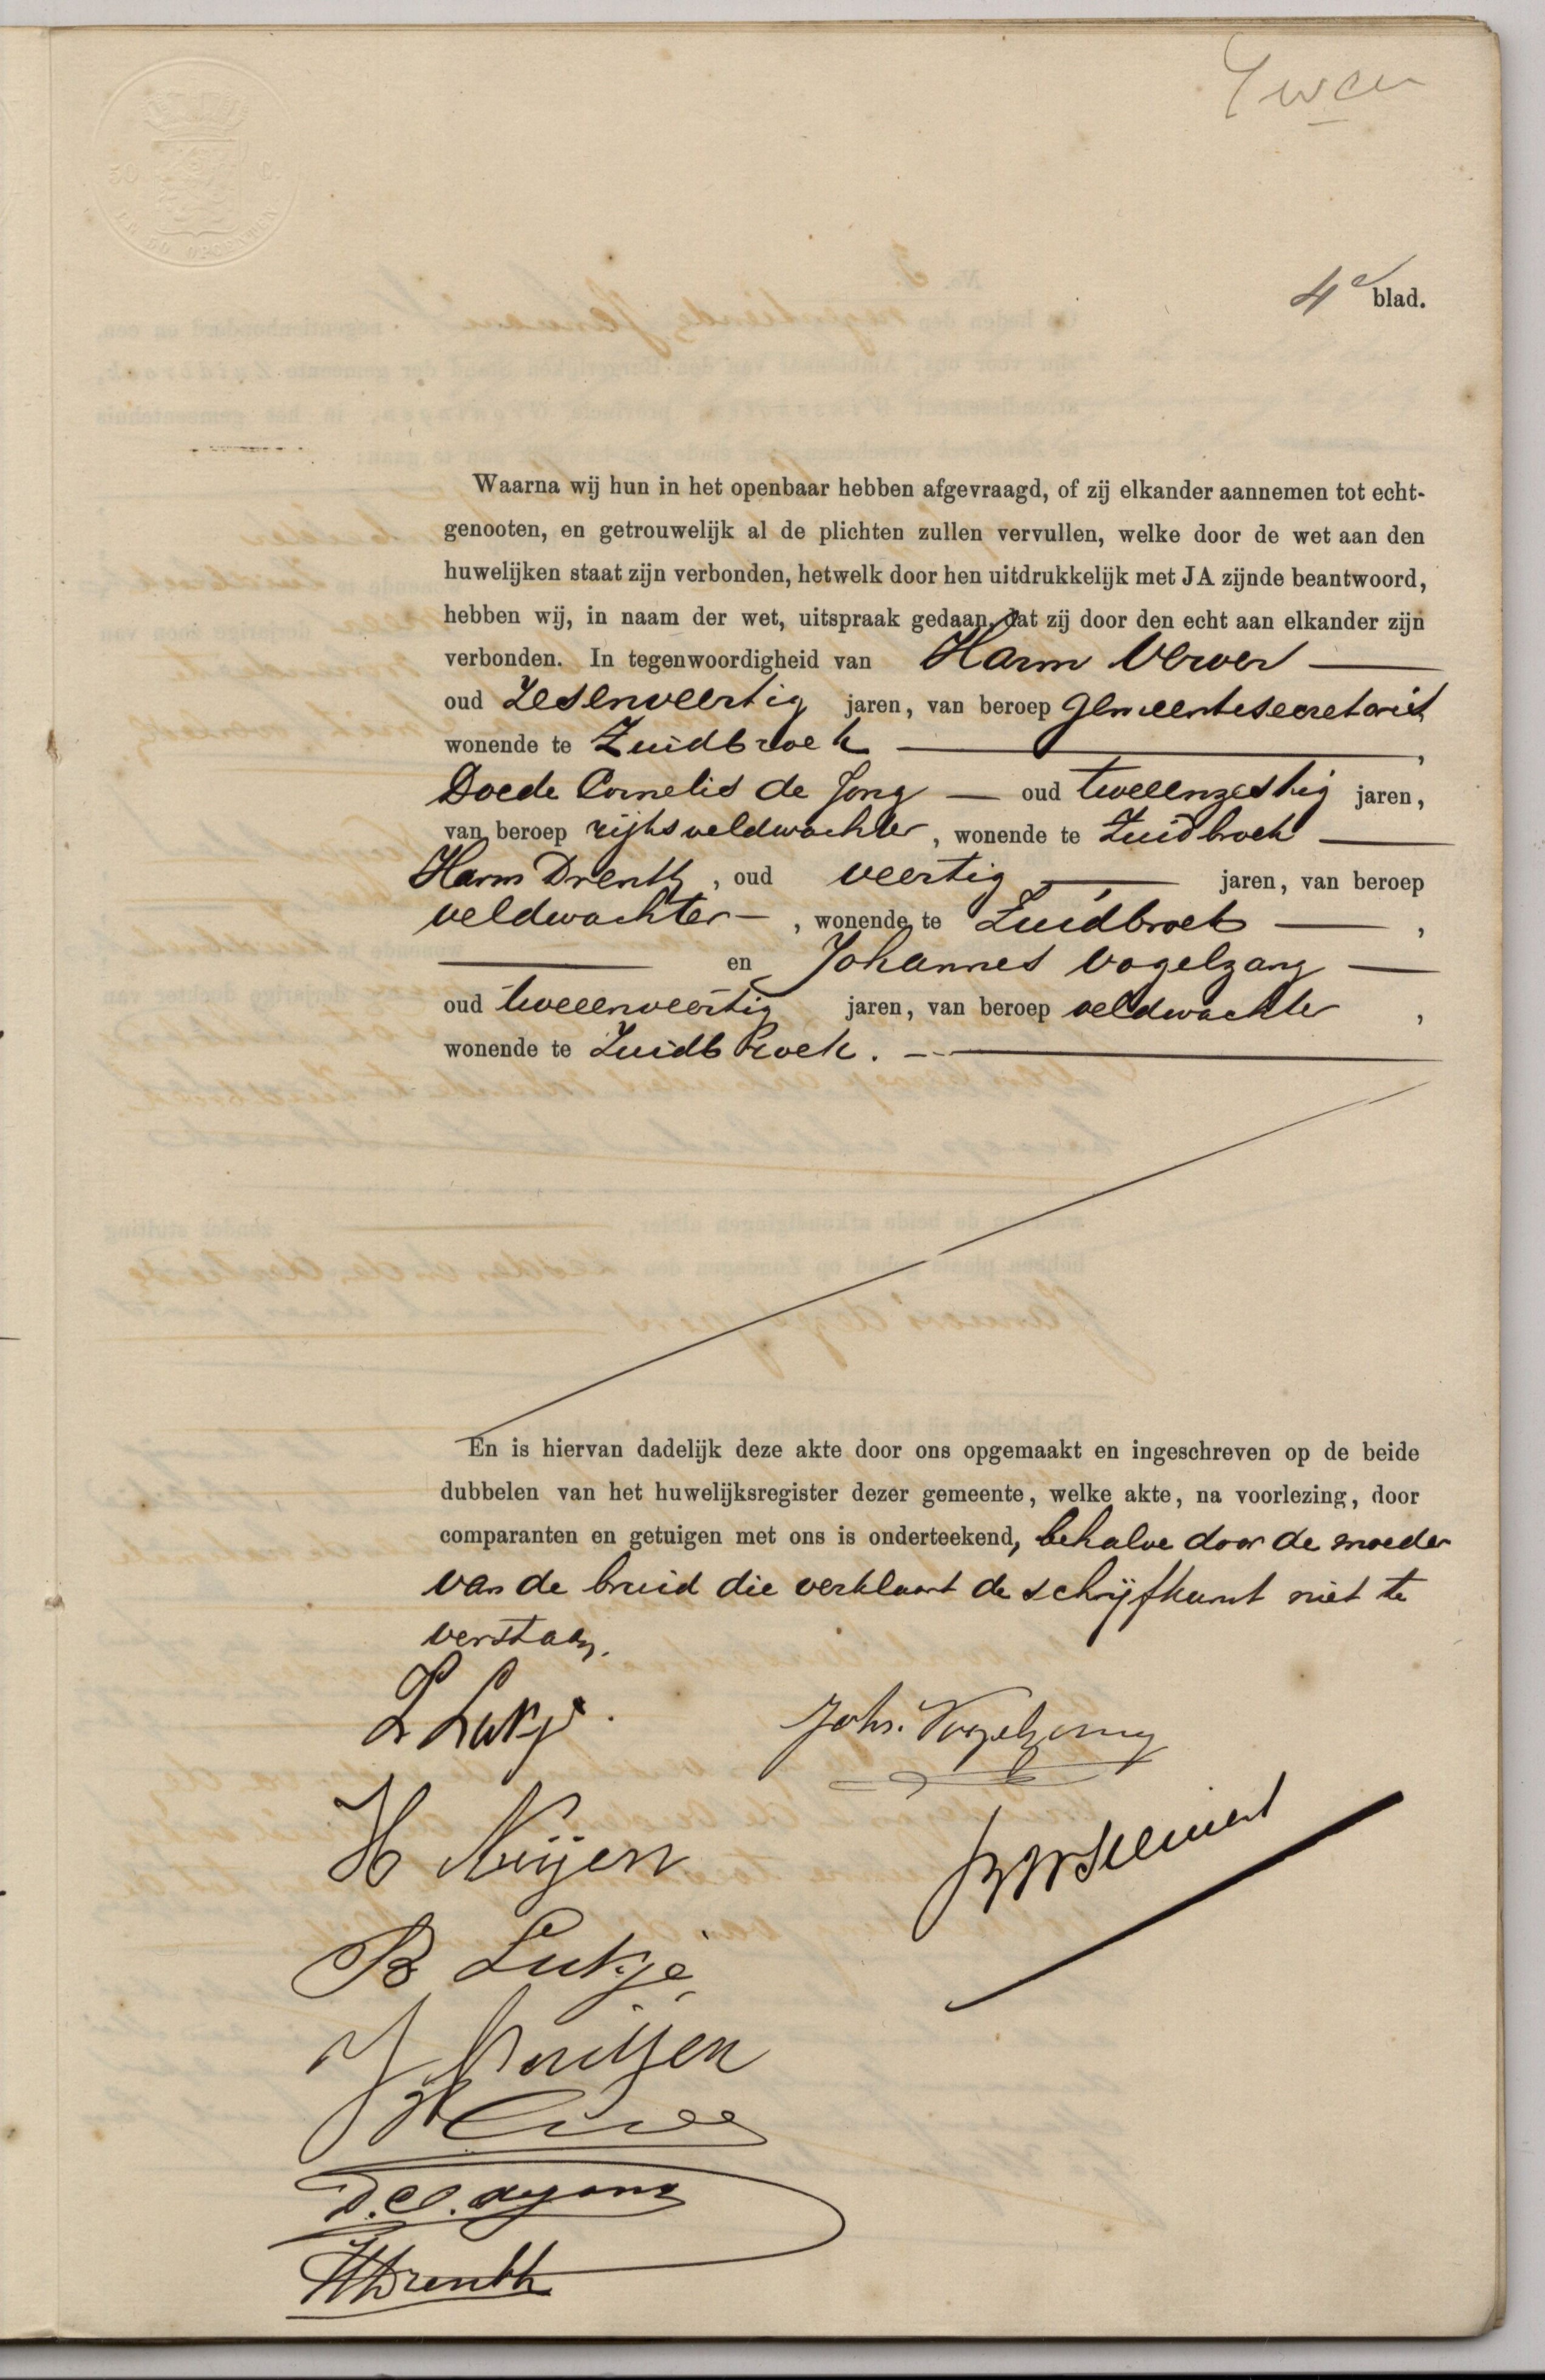 4e blad.
Waarna wij hun in het openbaar hebben afgevraagd, of zij elkander aannemen tot echt-
genooten, en getrouwelijk al de plichten zullen vervullen, welke door de wet aan den
huwelijken staat zijn verbonden, hetwelk door hen uitdrukkelijk met JA zijnde beantwoord,
hebben wij, in naam der wet, uitspraak gedaan, dat zij door den echt aan elkander zijn
verbonden. In tegenwoordigheid van Harm Verver —
oud zesenveertig jaren, van beroep gemeentesecretaris
wonende te Zuidbroek — ,
Doede Cornelis de Jong — oud tweeenzestig jaren,
van beroep rijksveldwachter, wonende te Zuidbroek —
Harm Drenth, oud veertig — jaren, van beroep
veldwachter —, wonende te Zuidbroek — ,
— en Johannes Vogelzang —
oud tweeenveertig jaren, van beroep veldwachter ,
wonende te Zuidbroek. —
En is hiervan dadelijk deze akte door ons opgemaakt en ingeschreven op de beide
dubbelen van het huwelijksregister dezer gemeente, welke akte, na voorlezing, door
comparanten en getuigen met ons is onderteekend, behalve door de moeder
van de bruid die verklaart de schrijfkunst niet te
verstaan.
L Lukje.
Johs. Vogelzang
H Nuijen
B Lukje
J Nuijen
D. C. de Jong
H Drenth